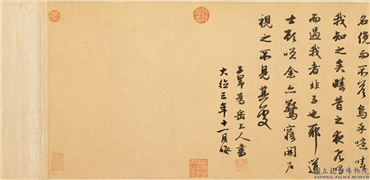 名俛而不答嗚乎噫嘻
我知之矣疇昔之夜飛鳴
而過我者非子也耶道
士顧咲余亦驚寤開戶
視之不見其處
子昂為岳上人書
大德三年十一月
國立故宮博物院
NATIONAL PALACE MUSEUM